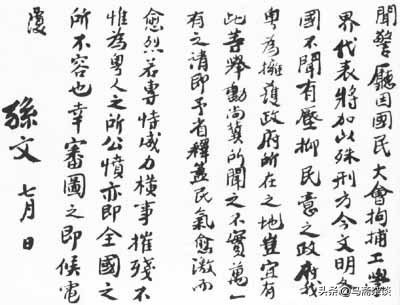 聞警廳因國民大會拘捕工學
界代表將加以殊刑方今文明各
國不聞有壓抑民意之政府我
粵為擁護政府所在之地豈宜有
此等舉動尚冀所聞之不實萬一
有之請即予省釋蓋民氣愈激而
愈烈若專恃威力橫事摧殘不
惟為粵人之所公憤亦即全國之
所不容也幸審圖之即候電
覆
孫文 七月 日
头条@乌斋雅谈